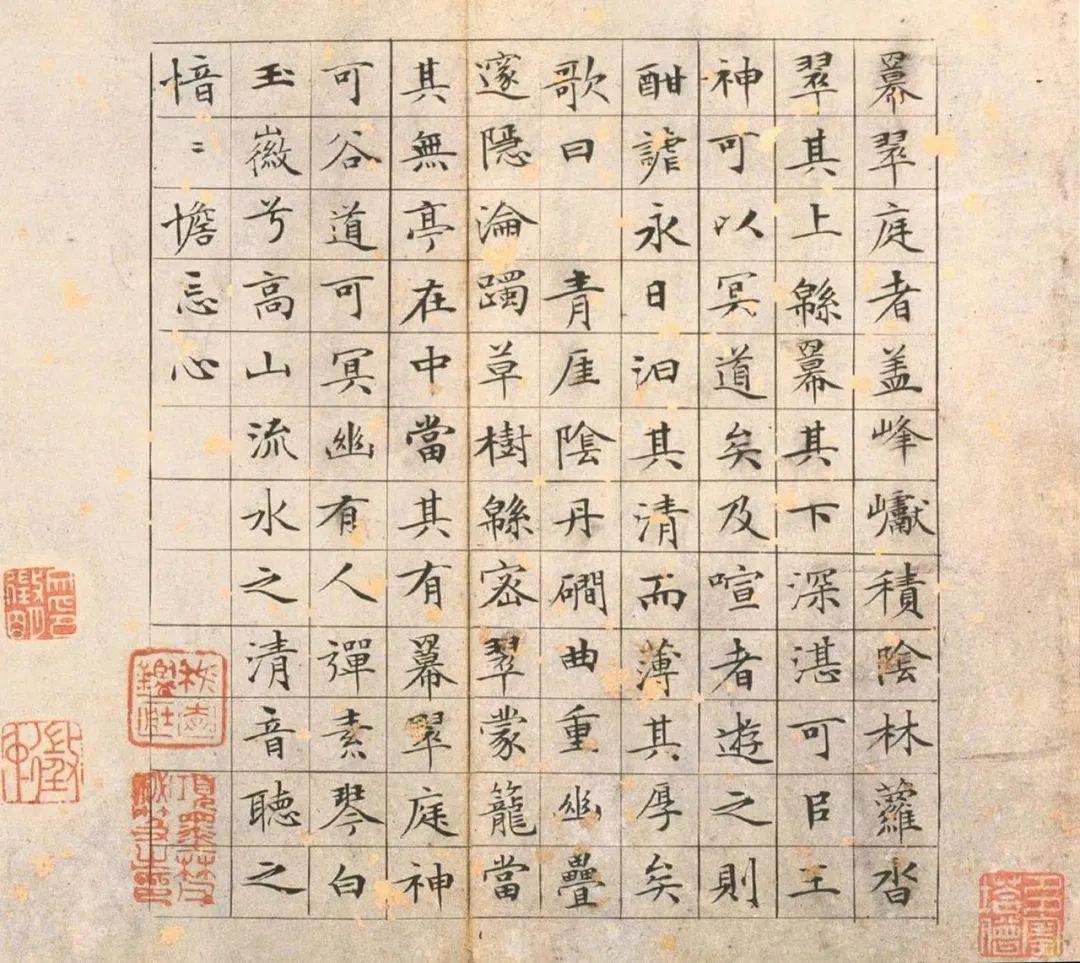 冪翠庭者盖峰巘積陰林蘿沓
翠其上緜冪其下深湛可㠯王
神可以冥道矣及喧者遊之則
酣謔永日汩其清而薄其厚矣
歌曰　青厓陰丹磵曲重幽疊
邃隱淪躅草樹緜密翠蒙籠當
其無亭在中當其有冪翠庭神
可谷道可冥幽有人彈素琴白
玉徽兮高山流水之清音聽之
愔〻憺忘心
項墨林父秘笈之印